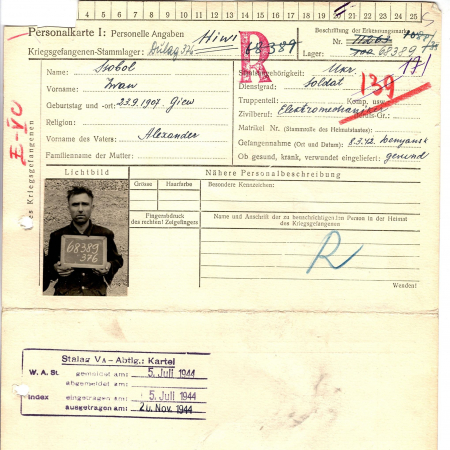 4 5 6 7 8 9 10 11 12 13 14 15 16 17 18 19 20 21 22 23 24 25
Personalkarte I: Personelle Angaben
Hiwi
Beschriftung der Erkennungsmarke
Kriegsgefangenen-Stammlager: Dulag 376
68389
Nr. 11263
Lager: 68389
R
171
Name: Szobol
Staatsangehörigkeit: Ukr.
Vorname: Iwan
Dienstgrad: Soldat
139
Truppenteil: Komp. usw.
Geburtstag und -ort: 23.9.1907. Giew
Zivilberuf: Elektromechaniker Berufs-Gr.:
Religion:
Matrikel Nr. (Stammrolle des Heimatstaates):
Vorname des Vaters: Alexander
Gefangennahme (Ort und Datum): 8.3.42. Demyansk
Familienname der Mutter:
Ob gesund, krank, verwundet eingeliefert: gesund
E-VC
des Kriegsgefangenen
Lichtbild
Nähere Personalbeschreibung
Grösse
Haarfarbe
Besondere Kennzeichen:
Fingerabdruck
des rechten! Zeigefingers
Name und Anschrift der zu benachrichtigenden Person in der Heimat
des Kriegsgefangenen
68389
376
R
Wenden!
Stalag VA - Abtlg.: Kartei
W. A. St. gemeldet am: 5. Juli 1944
abgemeldet am:
Index eingetragen am: 5. Juli 1944
ausgetragen am: 20. Nov. 1944